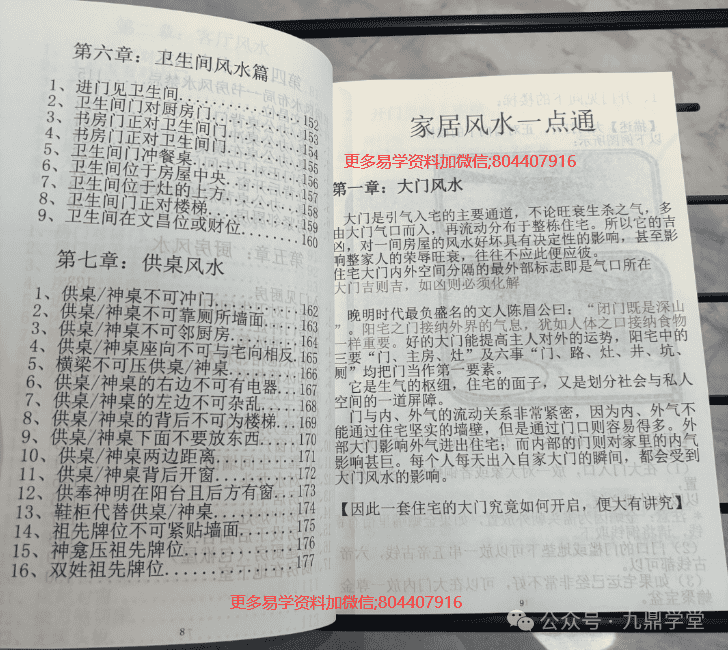 第六章：卫生间风水篇
1、进门见卫生间
2、卫生间门对厨房门......152
3、书房门正对卫生间门......153
4、书房门正对卫生间门......154
5、卫生间门冲餐桌......155
6、卫生间位于房屋中央......156
7、卫生间位于灶的上方......157
8、卫生间门正对楼梯......158
9、卫生间在文昌位或财位......159
160
第七章：供桌风水
1、供桌/神桌不可冲门......162
2、供桌/神桌不可靠厕所墙面......163
3、供桌/神桌不可邻厨房......164
4、供桌/神桌座向不可与宅向相反.165
5、横梁不可压供桌/神桌......166
6、供桌/神桌的右边不可有电器...167
7、供桌/神桌的左边不可杂乱......168
8、供桌/神桌的背后不可为楼梯...169
9、供桌/神桌下面不要放东西......170
10、供桌/神桌两边距离......171
11、供桌/神桌背后开窗......172
12、供奉神明在阳台且后方有窗...173
13、鞋柜代替供桌/神桌......174
14、祖先牌位不可紧贴墙面......175
15、神龛压祖先牌位......176
16、双姓祖先牌位......177
8
家居风水一点通
更多易学资料加微信;804407916
第一章：大门风水
大门是引气入宅的主要通道，不论旺衰生杀之气，多
由大门气口而入，再流动分布于整栋住宅。所以它的吉
凶，对一间房屋的风水好坏具有决定性的影响，甚至影
响整家人的荣辱旺衰，往往不应此便应彼。
住宅大门内外空间分隔的最外部标志即是气口所在
大门吉则吉，如凶则必须化解
晚明时代最负盛名的文人陈眉公曰：“闭门既是深山
”。阳宅之门接纳外界的气息，犹如人体之口接纳食物
一样重要。好的大门能提高主人对外的运势，阳宅中的
三要“门、主房、灶”及六事“门、路、灶、井、坑、
厕”均把门当作第一要素。
它是生气的枢纽，住宅的面子，又是划分社会与私人
空间的一道屏障。
门与内、外气的流动关系非常紧密，因为内、外气不
能通过住宅坚实的墙壁，但是通过门口则容易得多。外
部大门影响外气进出住宅；而内部的门则对家里的内气
影响甚巨。每个人每天出入自家大门的瞬间，都会受到
大门风水的影响。
【因此一套住宅的大门究竟如何开启，便大有讲究】
更多易学资料加微信;804407916
9
公众号·九鼎学堂